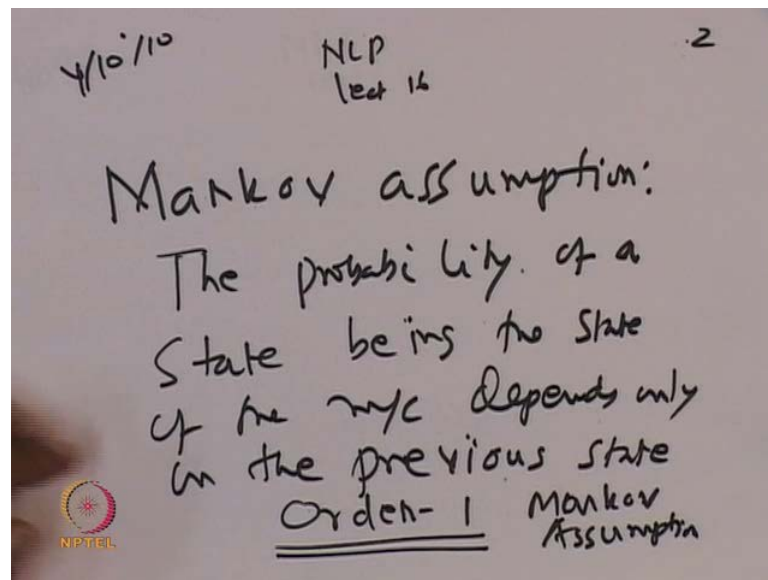 4/10/10 NLP .2
lect 16
Markov assumption:
The probability. of a
State being the state
of the m/c depends only
on the previous state
Order-1 Markov
Assumption
NPTEL